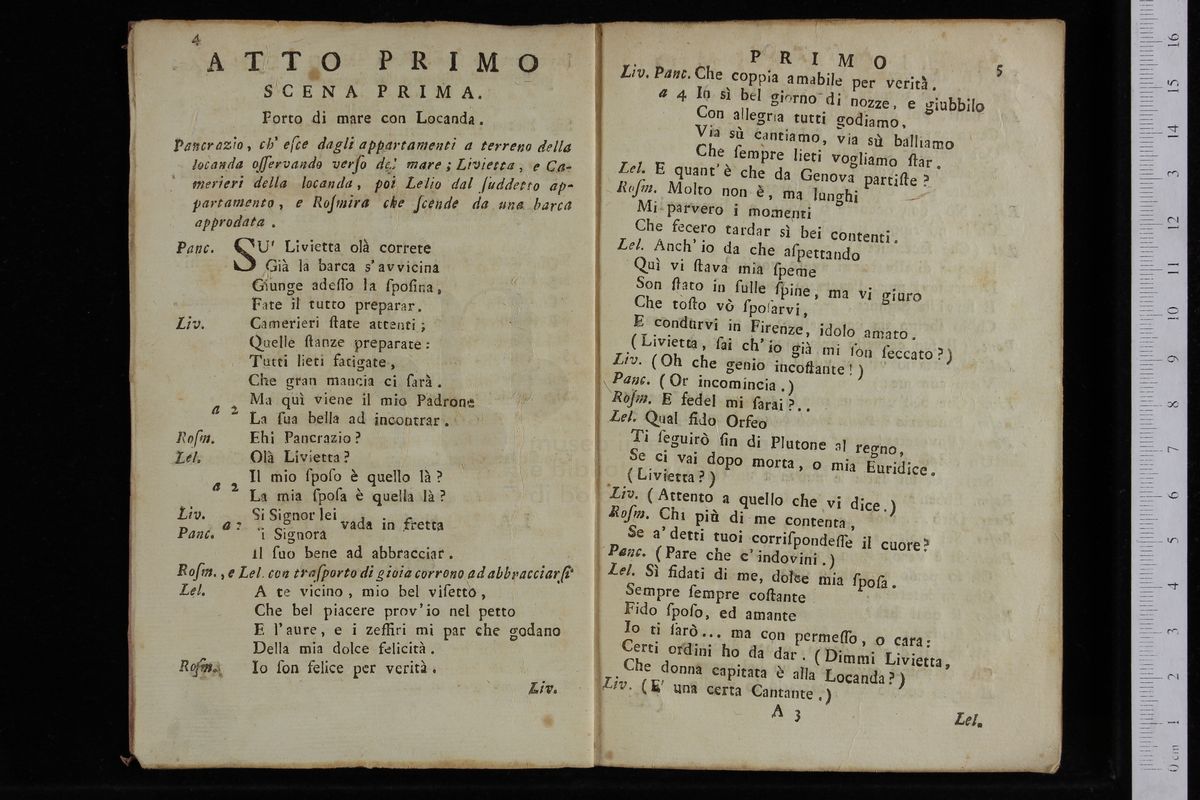 4
ATTO PRIMO
SCENA PRIMA.
Porto di mare con Locanda.
Pancrazio, ch' eſce dagli appartamenti a terreno della
locanda oſſervando verſo del mare; Livietta, e Ca-
merieri della locanda, poi Lelio dal ſuddetto ap-
partamento, e Roſmira che ſcende da una barca
approdata.
Panc. SU' Livietta olà correte
Già la barca s'avvicina
Giunge adeſſo la ſpoſina,
Fate il tutto preparar.
Liv. Camerieri ſtate attenti;
Quelle ſtanze preparate:
Tutti lieti fatigate,
Che gran mancia ci ſarà.
Ma quì viene il mio Padrone
a 2
La ſua bella ad incontrar.
Roſm. Ehi Pancrazio?
Lel. Olà Livietta?
Il mio ſpoſo è quello là?
a 2
La mia ſpoſa è quella là?
Liv. Si Signor lei
a 2 vada in fretta
Panc. Si Signora
il ſuo bene ad abbracciar.
Roſm., e Lel. con traſporto di gioia corrono ad abbracciarſi
Lel. A te vicino, mio bel viſetto,
Che bel piacere prov'io nel petto
E l'aure, e i zeffiri mi par che godano
Della mia dolce felicità.
Roſm. Io ſon felice per verità.
Liv.
PRIMO 5
Liv. Panc. Che coppia amabile per verità.
a 4 In sì bel giorno di nozze, e giubbilo
Con allegria tutti godiamo,
Via sù cantiamo, via sù balliamo
Che ſempre lieti vogliamo ſtar.
Lel. E quant'è che da Genova partiſte?
Roſm. Molto non è, ma lunghi
Mi parvero i momenti
Che fecero tardar sì bei contenti.
Lel. Anch'io da che aſpettando
Quì vi ſtava mia ſpeme
Son ſtato in ſulle ſpine, ma vi giuro
Che toſto vò ſpoſarvi,
E condurvi in Firenze, idolo amato.
(Livietta, ſai ch'io già mi ſon ſeccato?)
Liv. (Oh che genio incoſtante!)
Panc. (Or incomincia.)
Roſm. E fedel mi ſarai?..
Lel. Qual fido Orfeo
Ti ſeguirò fin di Plutone al regno,
Se ci vai dopo morta, o mia Euridice.
(Livietta?)
Liv. (Attento a quello che vi dice.)
Roſm. Chi più di me contenta,
Se a' detti tuoi corriſpondeſſe il cuore?
Panc. (Pare che c'indovini.)
Lel. Sì fidati di me, dolce mia ſpoſa.
Sempre ſempre coſtante
Fido ſpoſo, ed amante
Io ti ſarò... ma con permeſſo, o cara:
Certi ordini ho da dar. (Dimmi Livietta,
Che donna capitata è alla Locanda?)
Liv. (E' una certa Cantante.)
A 3 Lel.